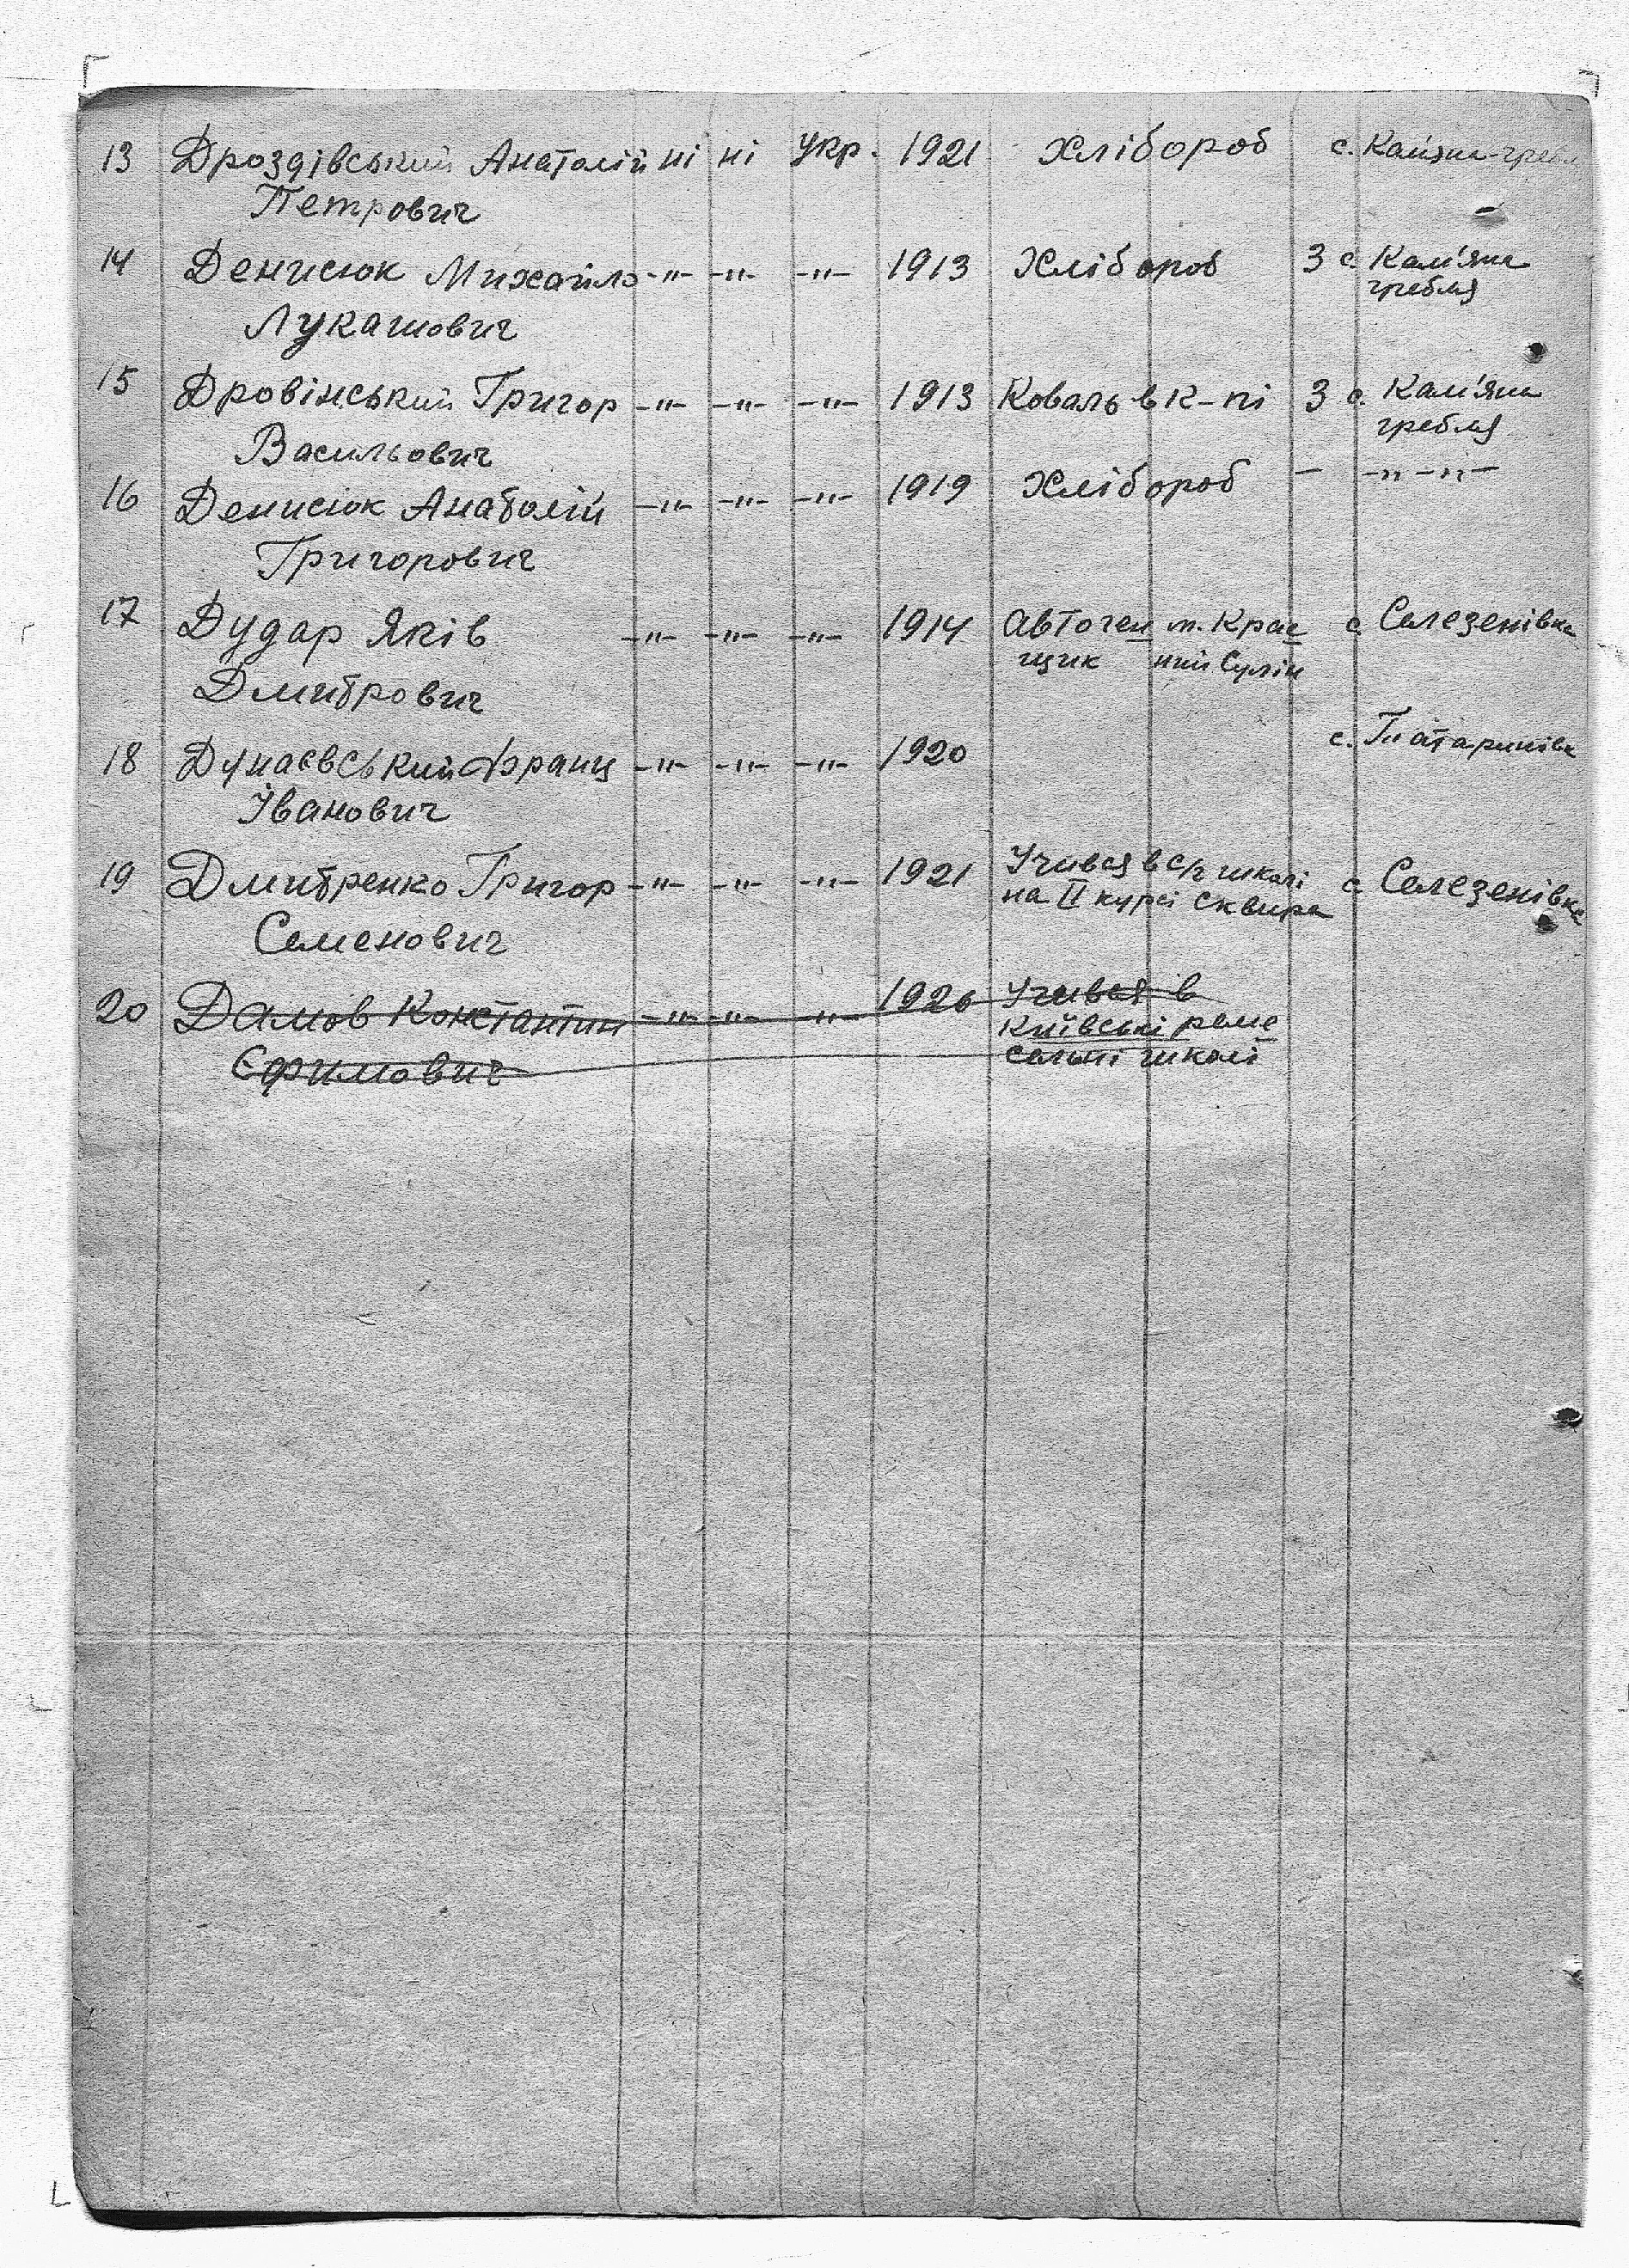 13 Дроздівський Анатолій ні ні укр. 1921 хлібороб с. Кам'яна-гребл
Петрович
14 Денисюк Михайло -"- -"- -"- 1913 Хлібороб 3 с. Кам'яна
гребля
Лукашович
15 Дровінський Григор -"- -"- -"- 1913 Коваль в к-пі 3 с. Кам'яна
гребля
Васильович
16 Денисюк Анатолій -"- -"- -"- 1919 Хлібороб - -"- -"-
Григорович
17 Дудар Яків -"- -"- -"- 1914 Автоген м. Крас с. Селезенівка
щик ний Сулін
Дмитрович
18 Дунаєвський Франц -"- -"- -"- 1920 с. Татаринівка
Іванович
19 Дмитренко Григор -"- -"- -"- 1921 Учився в с/г школі с. Селезенівка
на II курсі Сквира
Семенович
20 Дамов Константин -"- -"- -"- 1926 Учився в
Київські реме
сельні школі
Єфимович